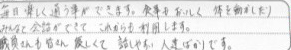 毎日楽しく通う事ができます。食事もおいしく体を動かしたり
みんなと会話ができてこれからも利用します。
職員さんも皆さん優しくて話しやすい人達ばかりです。